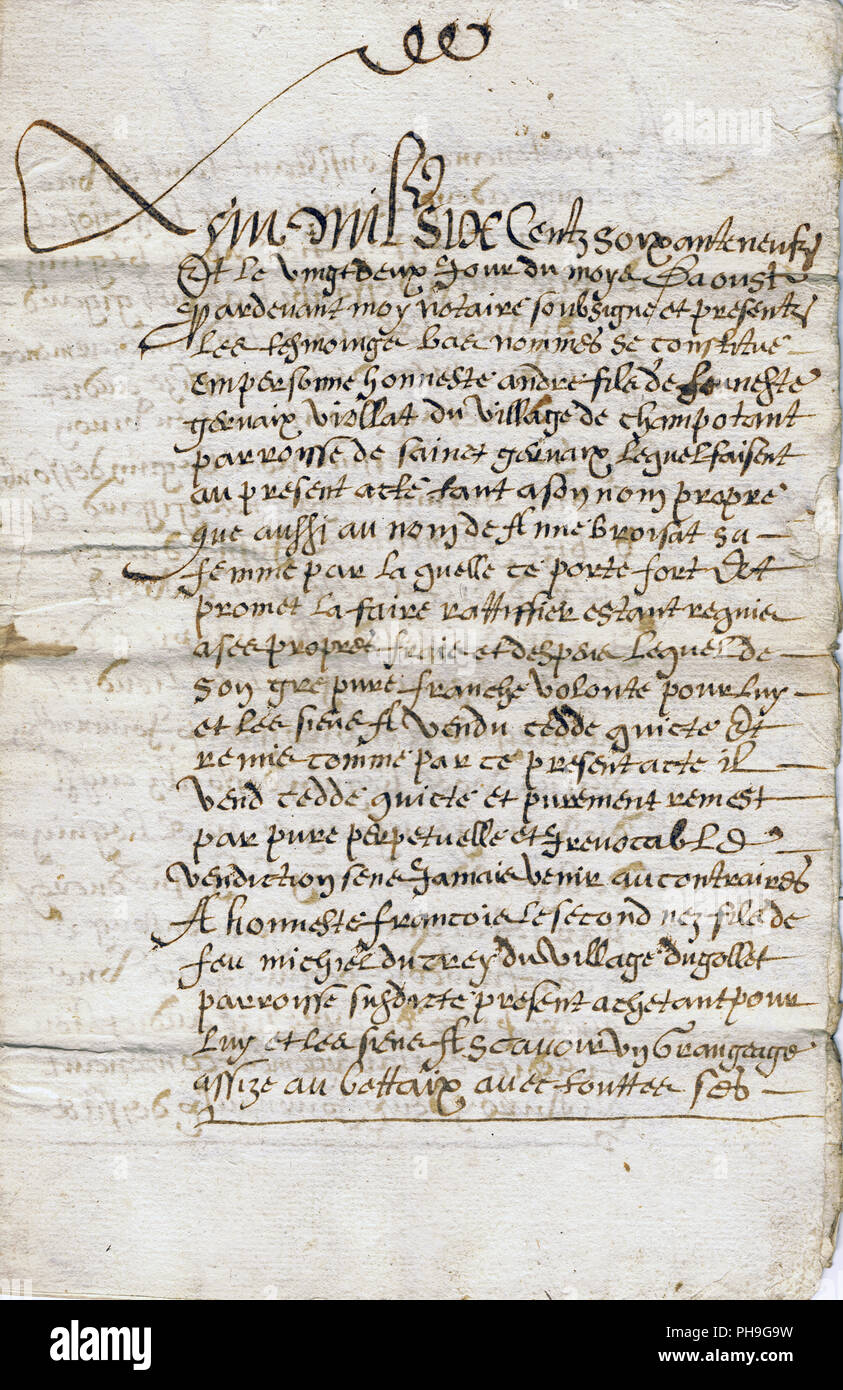 L'an mil six Centz soixante neufz
Et le vingtdeux Jour du moys Daoust
Pardevant moy notaire soubsigne et presentz
Les tesmoings bas nommes se constitue
en personne honneste andre fils de honneste
gervaix viollat du village de champotant
parroisse de sainct gervaix lequel faisent
au present acte tant a son nom propre
que aussi au nom de Anne Broisat sa
femme par laquelle ce porte fort Et
promet la faire rattiffier estant requis
a ses propres frais et despens lequel de
son gre pure franche volonte pour luy
et les siens A vendu cedde quicte Et
remis comme par ce present acte il
vend cedde quicte et purement remest
par pure perpetuelle et Irevocable
vendiction sens Jamais venir au contraires
A honneste francois le second nez fils de
feu michiel du crey du village du gollet
parroisse susdicte present achetant pour
Luy et les siens A scavoir un Grangeage
assize au bettaix avec touttes ses
alamy
PH9G9W
www.alamy.com